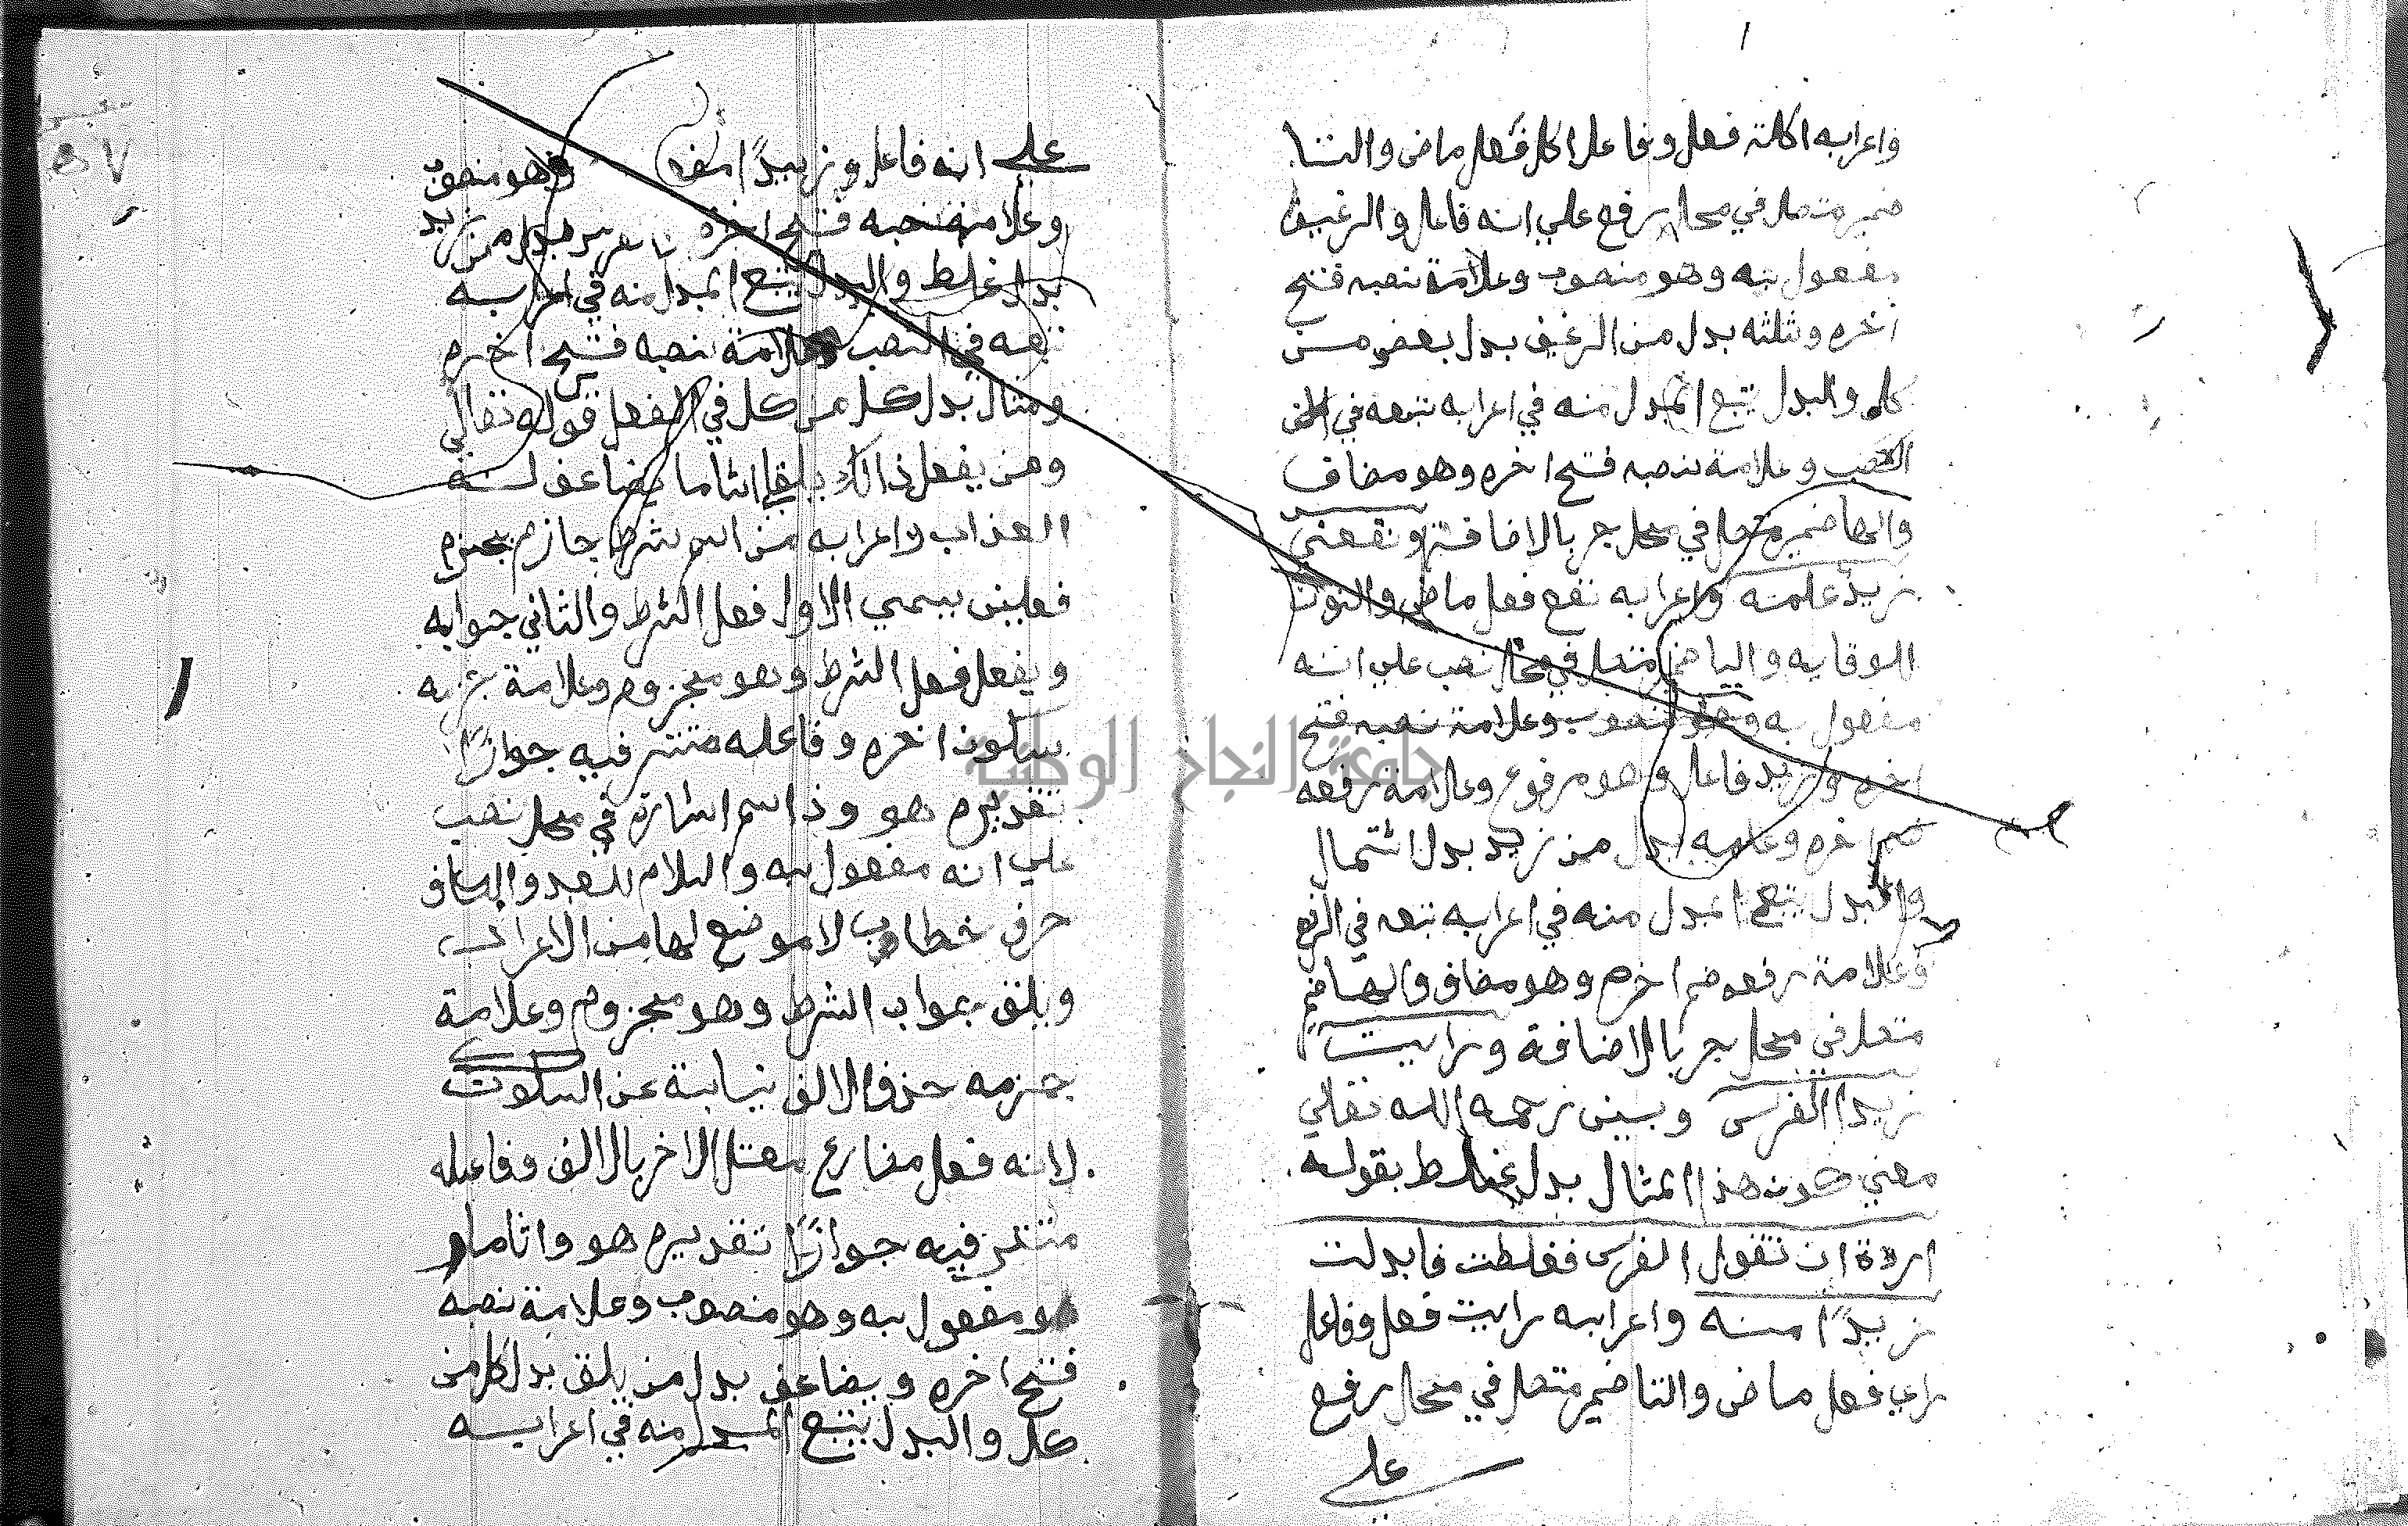 واعرابه اكلت فعل وفاعل اكل فعل ماض والتا
ضمير متصل في محل رفع علي انه فاعل والرغيف
مفعول به وهو منصوب وعلامة نصبه فتح
اخره وثلثه بدل من الرغيف بدل بعض من
كل والبدل يتبع المبدل منه في اعرابه تبعه في
النصب وعلامة نصبه فتح اخره وهو مضاف
والها ضمير متصل في محل جر بالاضافة ونفعني
زيد علمه واعرابه نفع فعل ماض والنون
الوقايه واليا ضمير متصل في محل نصب علي انه
مفعول به وهو منصوب وعلامة نصبه فتح
اخره وزيد فاعل وهو مرفوع وعلامة رفعه
ضم اخره وعلمه بدل من زيد بدل اشتمال
والبدل يتبع المبدل منه في اعرابه تبعه في الرفع
وعلامة رفعه ضم اخره وهو مضاف والها ضمير
متصل في محل جر بالاضافة ورايت
زيدا الفرس وبين رحمه الله تعالي
معني كون هذا المثال بدل غلط بقوله
اردة ان تقول الفرس فغلطت فابدلت
زيدًا منه واعرابه رايت فعل وفاعل
راي فعل ماض والتا ضمير متصل في محل رفع
علي
علي انه فاعل وزيدًا وهو منصوب
وعلامة نصبه فتح اخره بدل من زيد
بدل غلط والبدل يتبع المبدل منه في اعرابه
تبعه في النصب وعلامة نصبه فتح اخره
ومثال بدل كل من كل في الفعل قوله تعالي
ومن يفعل ذالك يلقي اثاما يضاعف له
العذاب واعرابه من اسم شرط جازم يجزم
فعلين يسمي الاول فعل الشرط والثاني جوابه
ويفعل فعل الشرط وهو مجزوم وعلامة جزمه
سكون اخره وفاعله مستتر فيه جوازًا
تقديره هو وذا اسم اشارة في محل نصب
علي انه مفعول به واللام للبعد والكاف
حرف خطاب لا موضع لها من الاعراب
ويلق جواب الشرط وهو مجزوم وعلامة
جزمه حذف الالف نيابة عن السكون
لانه فعل مضارع معتل الاخر بالالف وفاعله
مستتر فيه جوازًا تقديره هو واثاما
هو مفعول به وهو منصوب وعلامة نصبه
فتح اخره ويضاعف بدل من يلق بدل كل من
كل والبدل يتبع المبدل منه في اعرابه
جامعة النجاح الوطنية